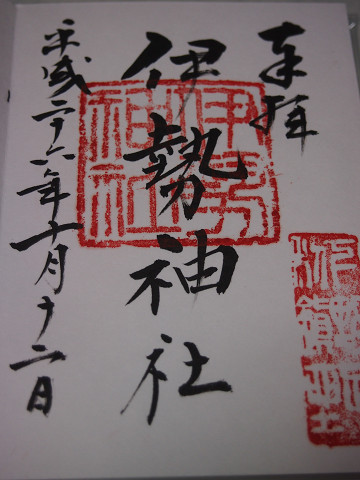 奉拝
伊勢神社
平成二十六年十月十二日
伊勢神社